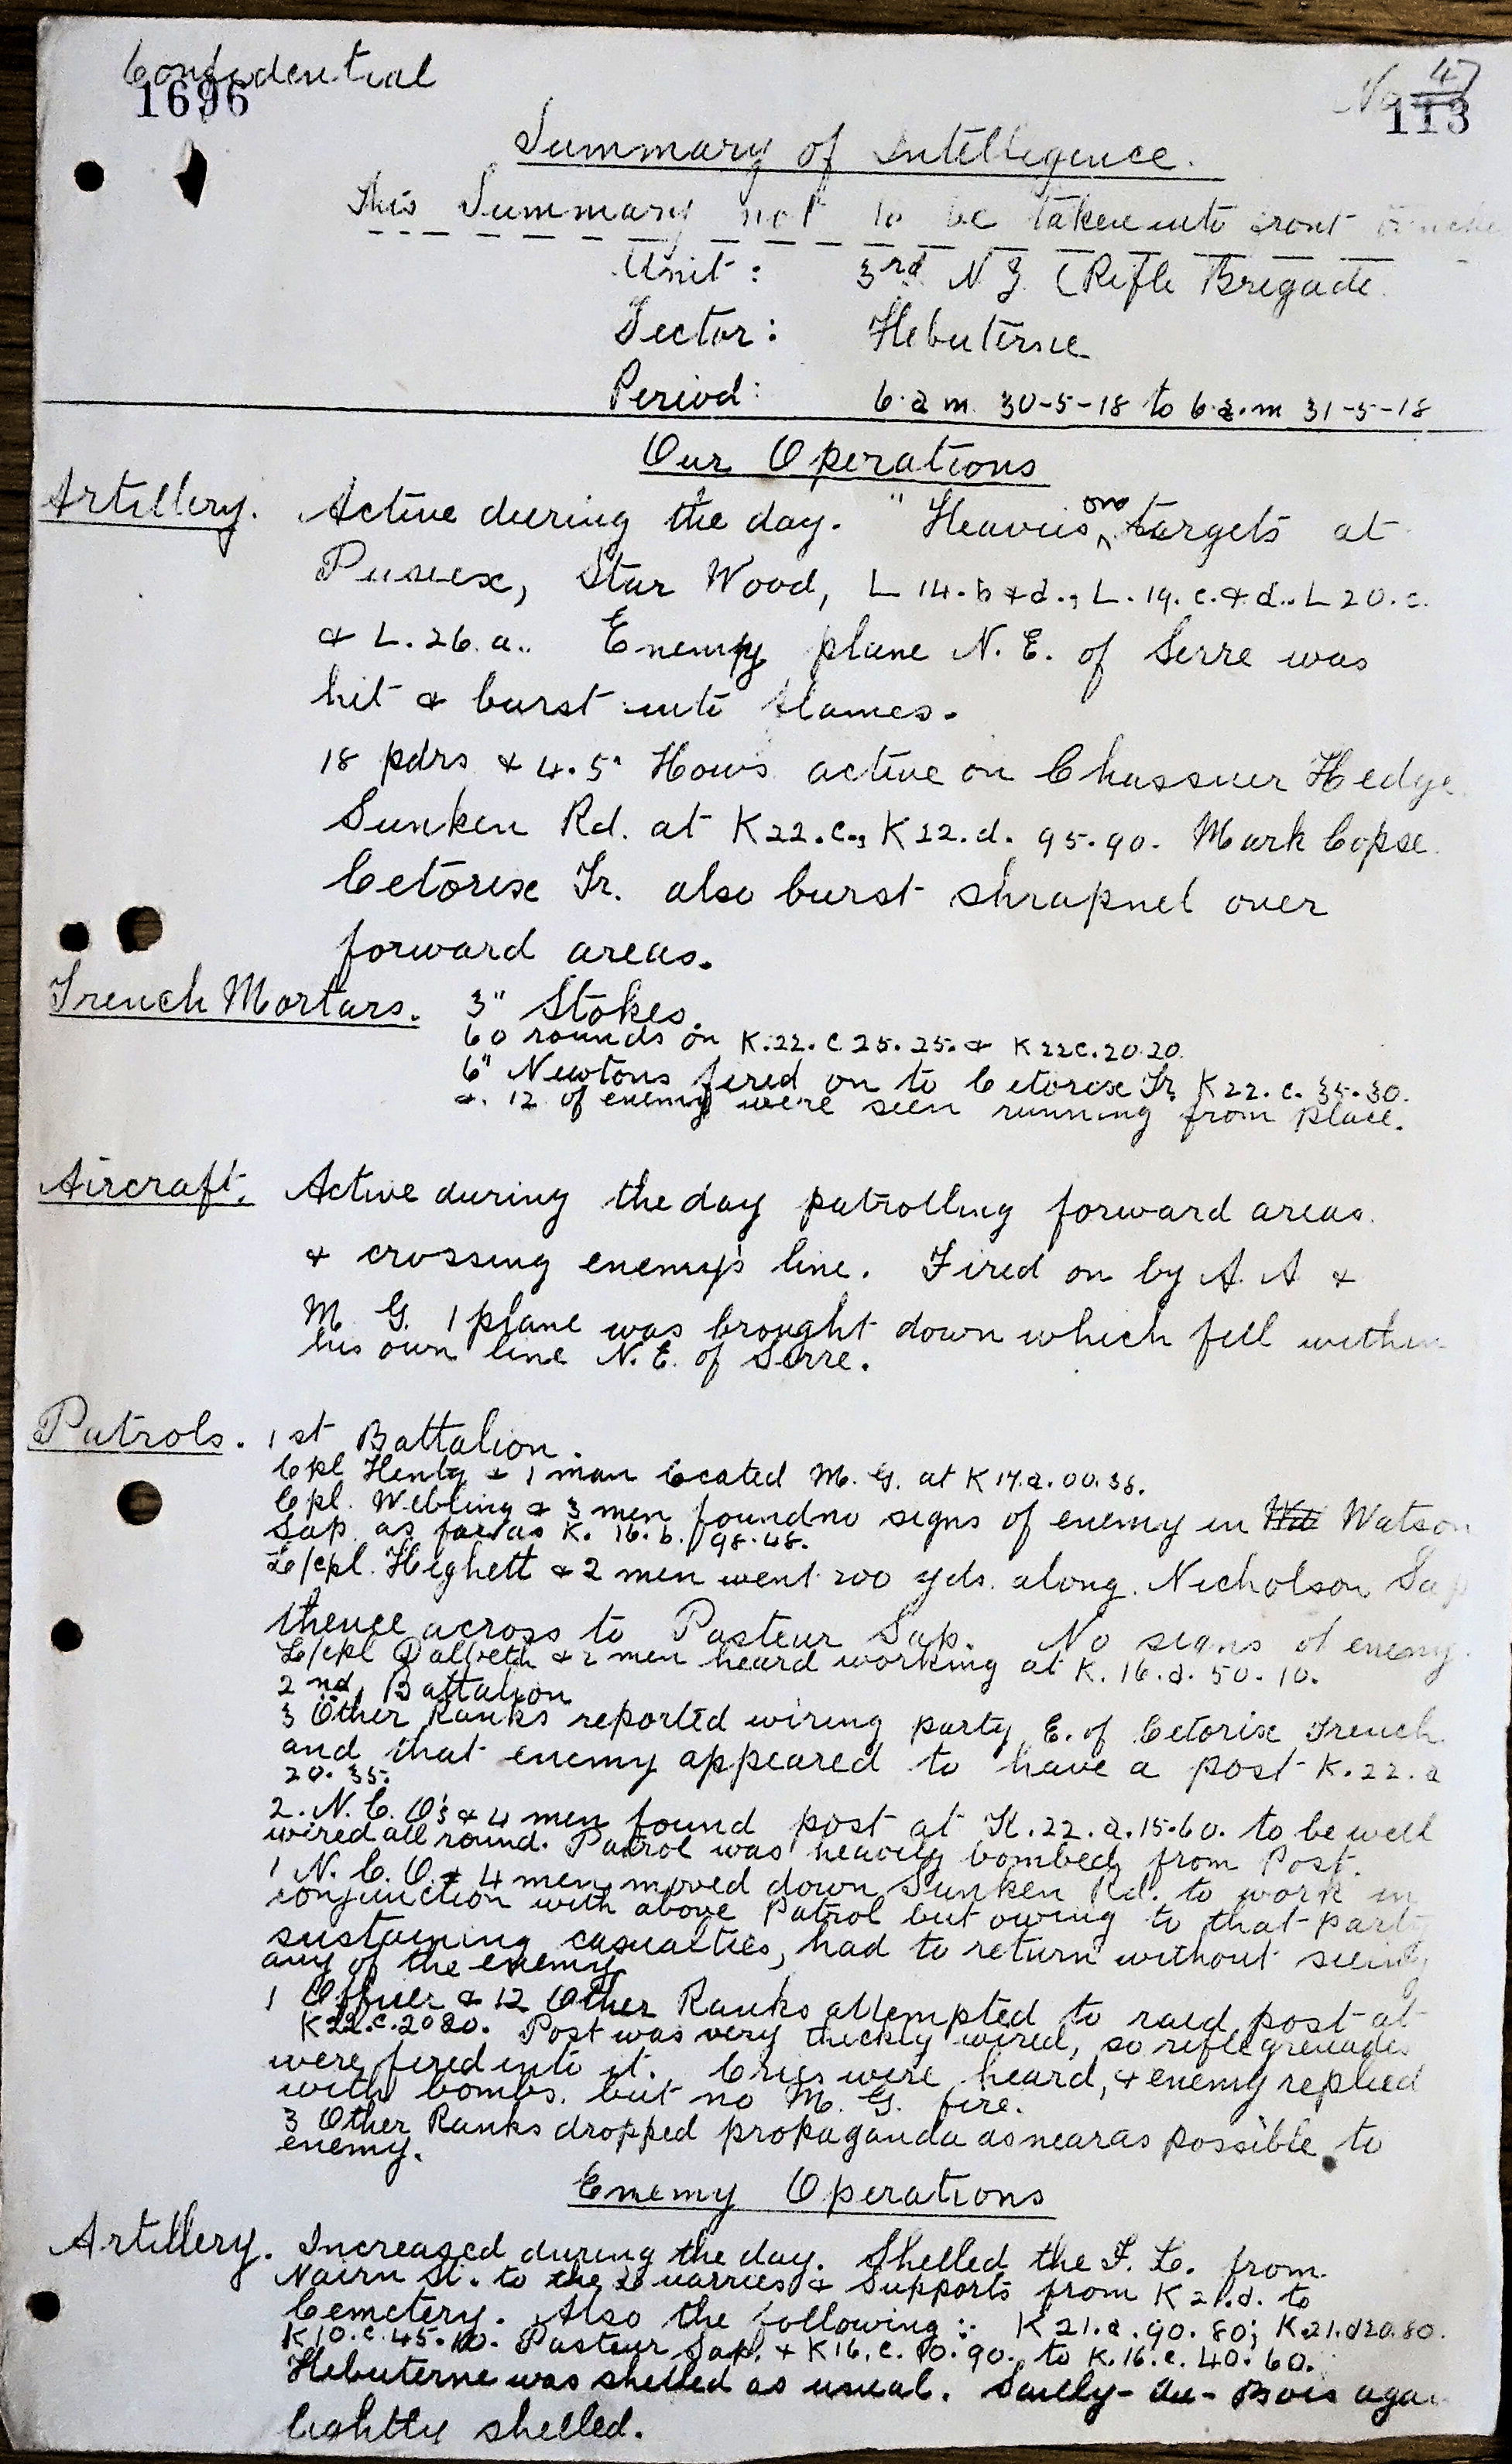 Confidential
1696
No 47
113
Summary of Intelligence.
This Summary not to be taken into front
Unit: 3rd N Z (Rifle Brigade
Sector: Hebuterne
Period: 6.a m. 30-5-18 to 6.a.m 31-5-18
Our Operations
Artillery. Active during the day. "Heavies on targets at
Pusieux, Star Wood, L 14.b & d., L.19.c.& d.. L 20.c.
& L.26.a.. Enemy plane N.E. of Serre was
hit & burst into flames.
18 pdrs & 4.5" Hows active on Chasseur Hedge
Sunken Rd. at K22.c., K22.d. 95.90. Mark Copse.
Cetorix Tr. also burst shrapnel over
forward areas.
Trench Mortars. 3" Stokes.
60 rounds on K.22.c 25.25. & K22c.20.20.
6" Newtons fired on to Cetorix Tr. K22.c.35.30.
&. 12 of enemy were seen running from place.
Aircraft. Active during the day patrolling forward areas.
& crossing enemy's line. Fired on by A.A &
M. G. 1 plane was brought down which fell within
his own line N.E. of Serre.
Patrols. 1st Battalion.
Cpl Henty & 1 man located M. G. at K17.a.00.35.
Cpl. Webling & 3 men found no signs of enemy in Watson
Sap as far as K.16.b.98.48.
L/cpl. Heghett & 2 men went 200 yds. along Nicholson Sap
thence across to Pasteur Sap. No signs of enemy.
L/cpl Dalbeth & 2 men heard working at K.16.d.50.10.
2nd Battalion
3 Other Ranks reported wiring party E. of Cetorix Trench.
and that enemy appeared to have a post K.22.a
20.35.
2. N.C.O's & 4 men found post at K.22.a.15.60. to be well
wired all round. Patrol was heavily bombed from Post.
1 N.C.O. & 4 men moved down Sunken Rd. to work in
conjunction with above Patrol but owing to that party
sustaining casualties, had to return without seeing
any of the enemy
1 Officer & 12 Other Ranks attempted to raid post at
K22.c.2080. Post was very thickly wired, so rifle grenades
were fired into it. Cries were heard, & enemy replied
with bombs. but no M. G. fire.
3 Other Ranks dropped propaganda as near as possible to
enemy.
Enemy Operations
Artillery. Increased during the day. Shelled the F. L. from
Nairn St. to the Quarries & Supports from K21.d. to
Cemetery. Also the following: K21.a.90.80; K.21.d20.80.
K10.c.45.10. Pasteur Sap. & K16.c.10.90. to K.16.c.40.60.
Hebuterne was shelled as usual. Sailly-Au-Bois again
lightly shelled.